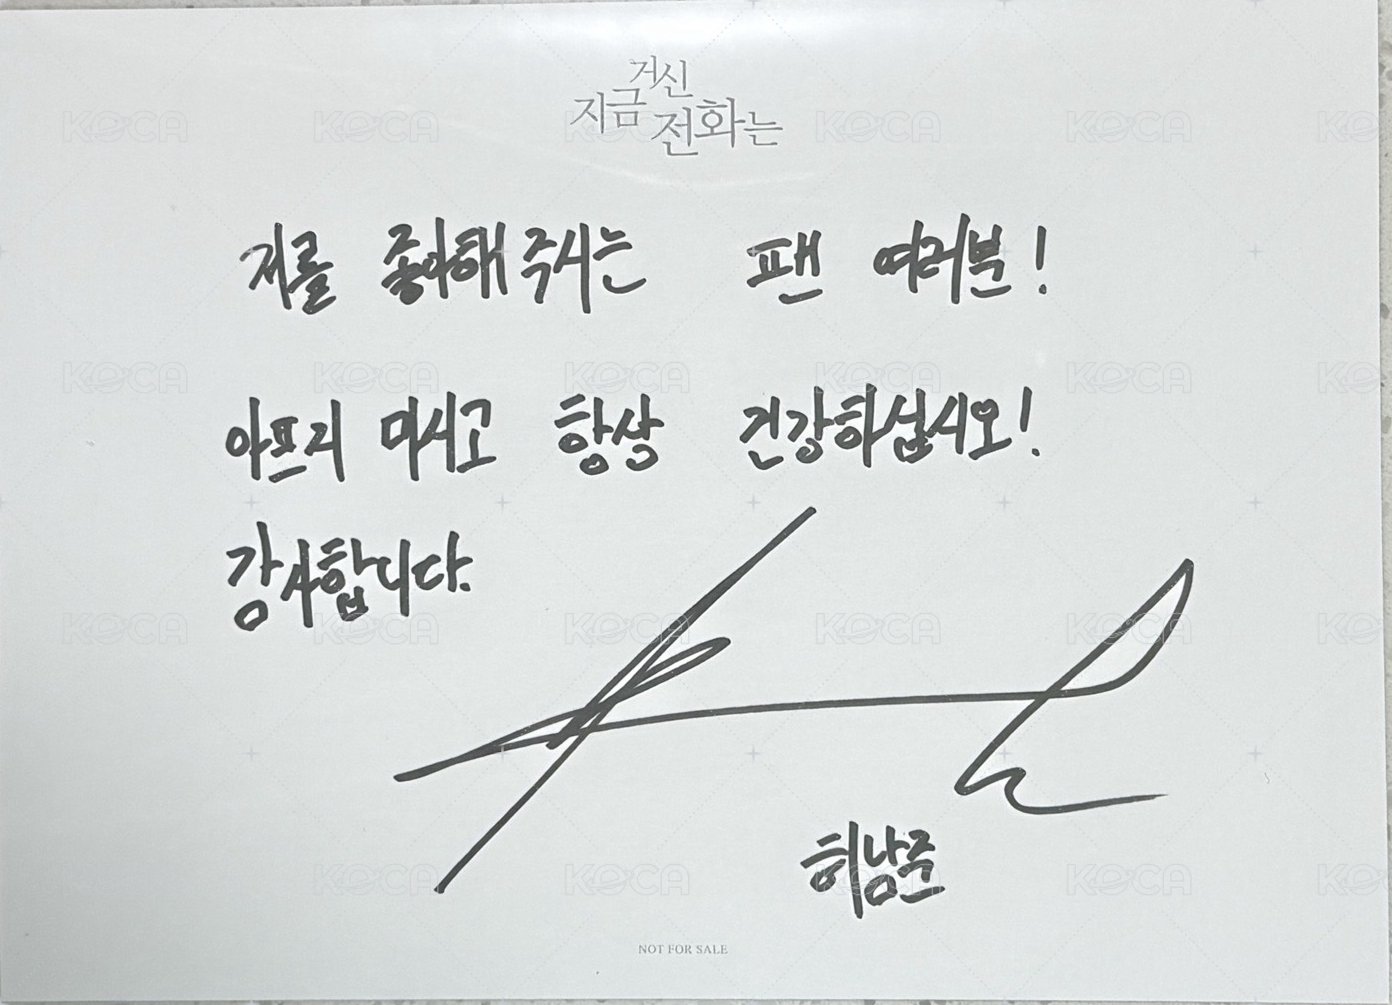 지금 거신
전화는
저를 좋아해주시는 팬 여러분!
아프지 마시고 항상 건강하십시오!
감사합니다.
허남준
NOT FOR SALE
KOCA